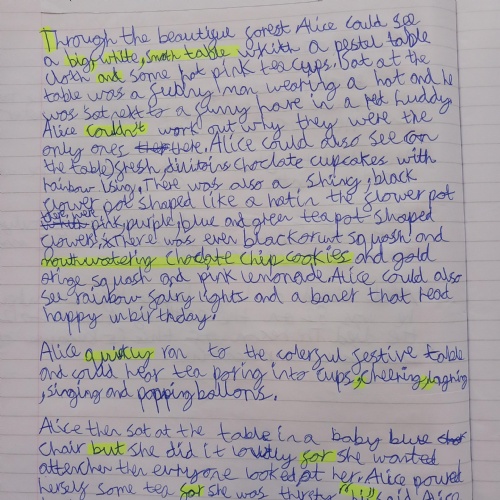 Through the beautiful forest Alice could see
a big, white, smoth table whith a pestul table
cloth and some hot pink tea cups. Sat at the
table was a funny man wearing a hat and he
was sat next to a funny hare in a red huddy
Alice couldn't work out why they were the
only ones there. Alice could also see (on
the table) fresh choclate cupcakes with
rainbow Ising. There was also a, shing, black
flower pot shaped like a hat in the flower pot
there were pink, purple, blue and green tea pot shaped
flowers. There was even blackorunt squash and
mouthwatering choclate chip cookies and gold
oringe squash and pink lemonade. Alice could also
see rainbow fairy lights and a baner that read
happy unbirthday.
Alice quickly ran to the colerful festive table
and could hear tea poring into cups, cheering, laghing
, singing and popping balloons.
Alice then sat at the table in a baby blue
chair but she did it loudly for she wanted
attenchen then evryone looked at her. Alice powed
herself some tea for she was thirsty "Hi" said Alice